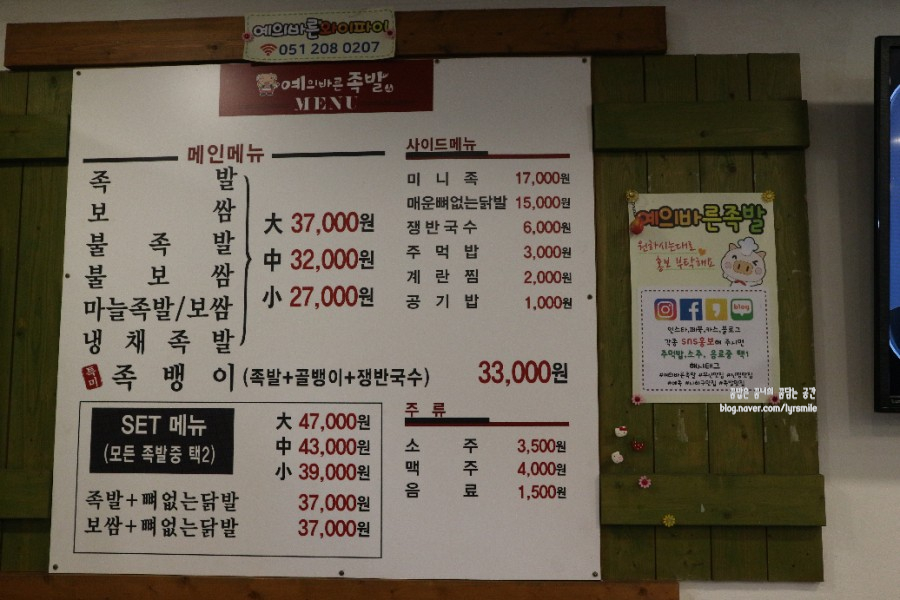 예의바른와이파이
051 208 0207
예의바른족발
MENU
메인메뉴
족 발
보 쌈
불 족 발
불 보 쌈
마늘족발/보쌈
냉 채 족 발
大 37,000원
中 32,000원
小 27,000원
특미 족 뱅 이 (족발+골뱅이+쟁반국수) 33,000원
SET 메뉴
(모든 족발중 택2)
大 47,000원
中 43,000원
小 39,000원
족발+뼈없는닭발 37,000원
보쌈+뼈없는닭발 37,000원
사이드메뉴
미 니 족 17,000원
매운뼈없는닭발 15,000원
쟁반국수 6,000원
주 먹 밥 3,000원
계 란 찜 2,000원
공 기 밥 1,000원
주 류
소 주 3,500원
맥 주 4,000원
음 료 1,500원
예의바른족발
원하시는대로
홍보 부탁해요
blog
인스타,페북,카스,블로그
각종 sns홍보해 주시면
주먹밥,소주, 음료중 택1
해시태그
blog.naver.com/lyrsmile